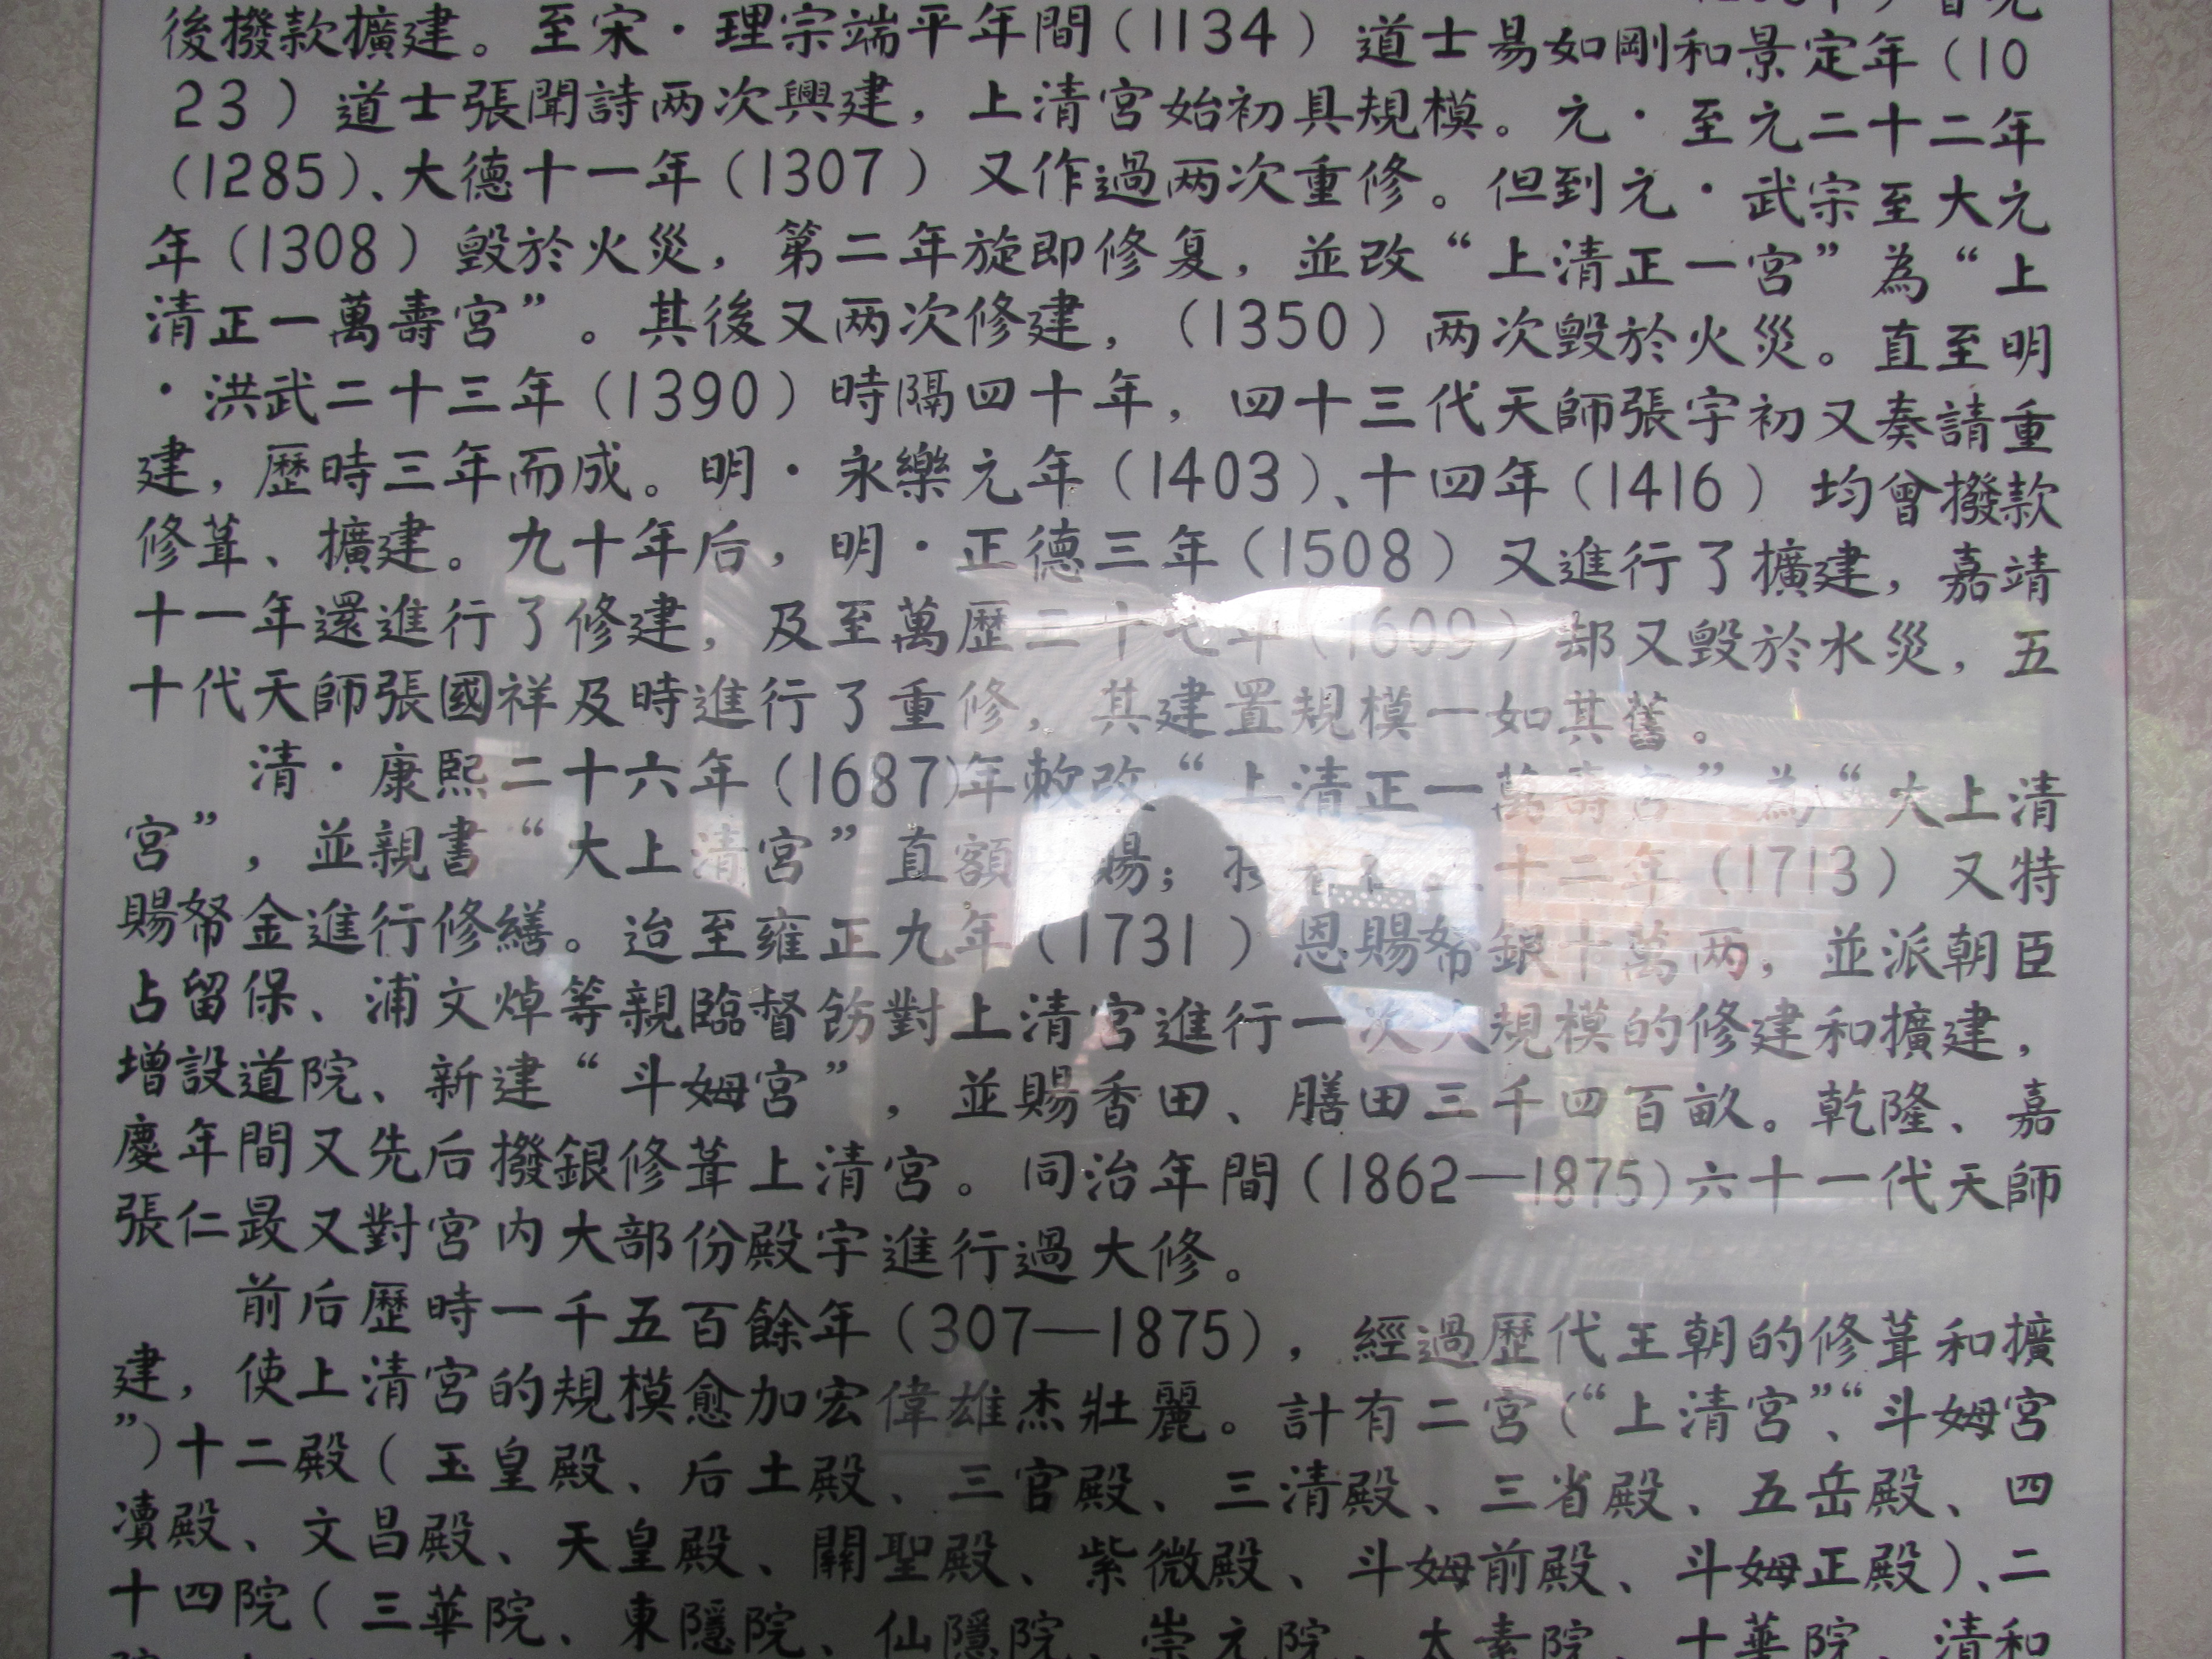 後撥款擴建。至宋·理宗端平年間(1134)道士易如剛和景定年(10
23)道士張聞詩两次興建，上清宮始初具規模。元·至元二十二年
(1285)、大德十一年(1307)又作過两次重修。但到元·武宗至大元
年(1308)毀於火災，第二年旋即修复，並改“上清正一宮”為“上
清正一萬壽宮”。其後又两次修建，(1350)两次毀於火災。直至明
·洪武二十三年(1390)時隔四十年，四十三代天師張宇初又奏請重
建，歷時三年而成。明·永樂元年(1403)、十四年(1416)均曾撥款
修葺、擴建。九十年后，明·正德三年(1508)又進行了擴建，嘉靖
十一年還進行了修建，及至萬歷三十七年(1609)却又毀於水災，五
十代天師張國祥及時進行了重修，其建置規模一如其舊。
清·康熙二十六年(1687)年敕改“上清正一萬壽宮”為“大上清
宮”，並親書“大上清宮”直額 賜； 十二年(1713)又特
賜帑金進行修繕。迨至雍正九年(1731)恩賜帑銀十萬两，並派朝臣
占留保、浦文焯等親臨督飭對上清宮進行一次大規模的修建和擴建，
增設道院、新建“斗姆宮”，並賜香田、膳田三千四百畝。乾隆、嘉
慶年間又先后撥銀修葺上清宮。同治年間(1862—1875)六十一代天師
張仁晸又對宮内大部份殿宇進行過大修。
前后歷時一千五百餘年(307—1875)，經過歷代王朝的修葺和擴
建，使上清宮的規模愈加宏偉雄杰壯麗。計有二宮(“上清宮”、“斗姆宮
”)十二殿(玉皇殿、后土殿、三官殿、三清殿、三省殿、五岳殿、四
瀆殿、文昌殿、天皇殿、關聖殿、紫微殿、斗姆前殿、斗姆正殿)、二
十四院(三華院、東隱院、仙隱院、崇元院、太素院、十華院、清和